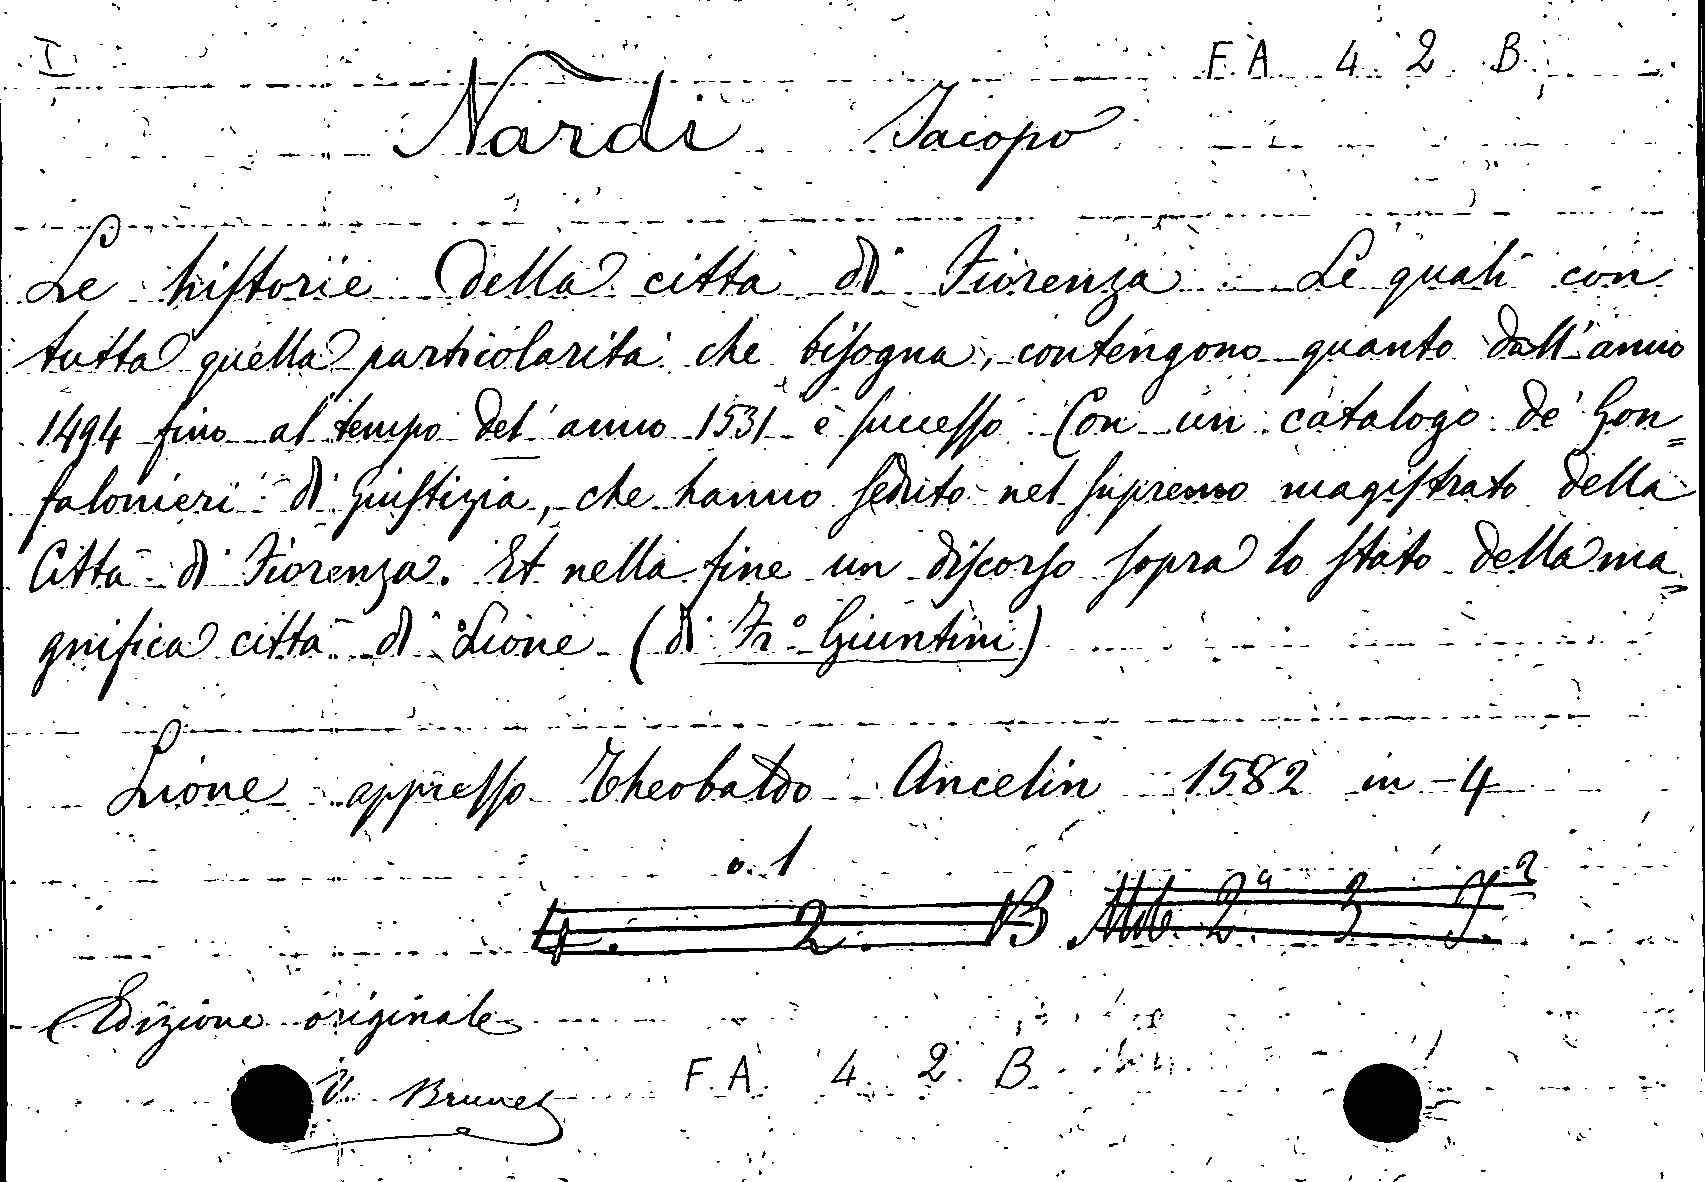 I
F.A. 4. 2. B.
Nardi Jacopo
Le historie della città di Fiorenza. Le quali con
tutta quella particolarità che bisogna, contengono quanto dall'anno
1494 fino al tempo del anno 1531 è successo. Con un catalogo de' Gon=
falonieri di Giustizia, che hanno seduto nel supremo magistrato della
Città di Fiorenza. Et nella fine un discorso sopra lo stato della ma=
gnifica città di Lione (di Fr.º Giuntini)
Lione appresso Theobaldo Ancelin 1582 in-4
v. 1
4. 2. B
Edizione originale
V. Brunet
F.A. 4. 2. B.